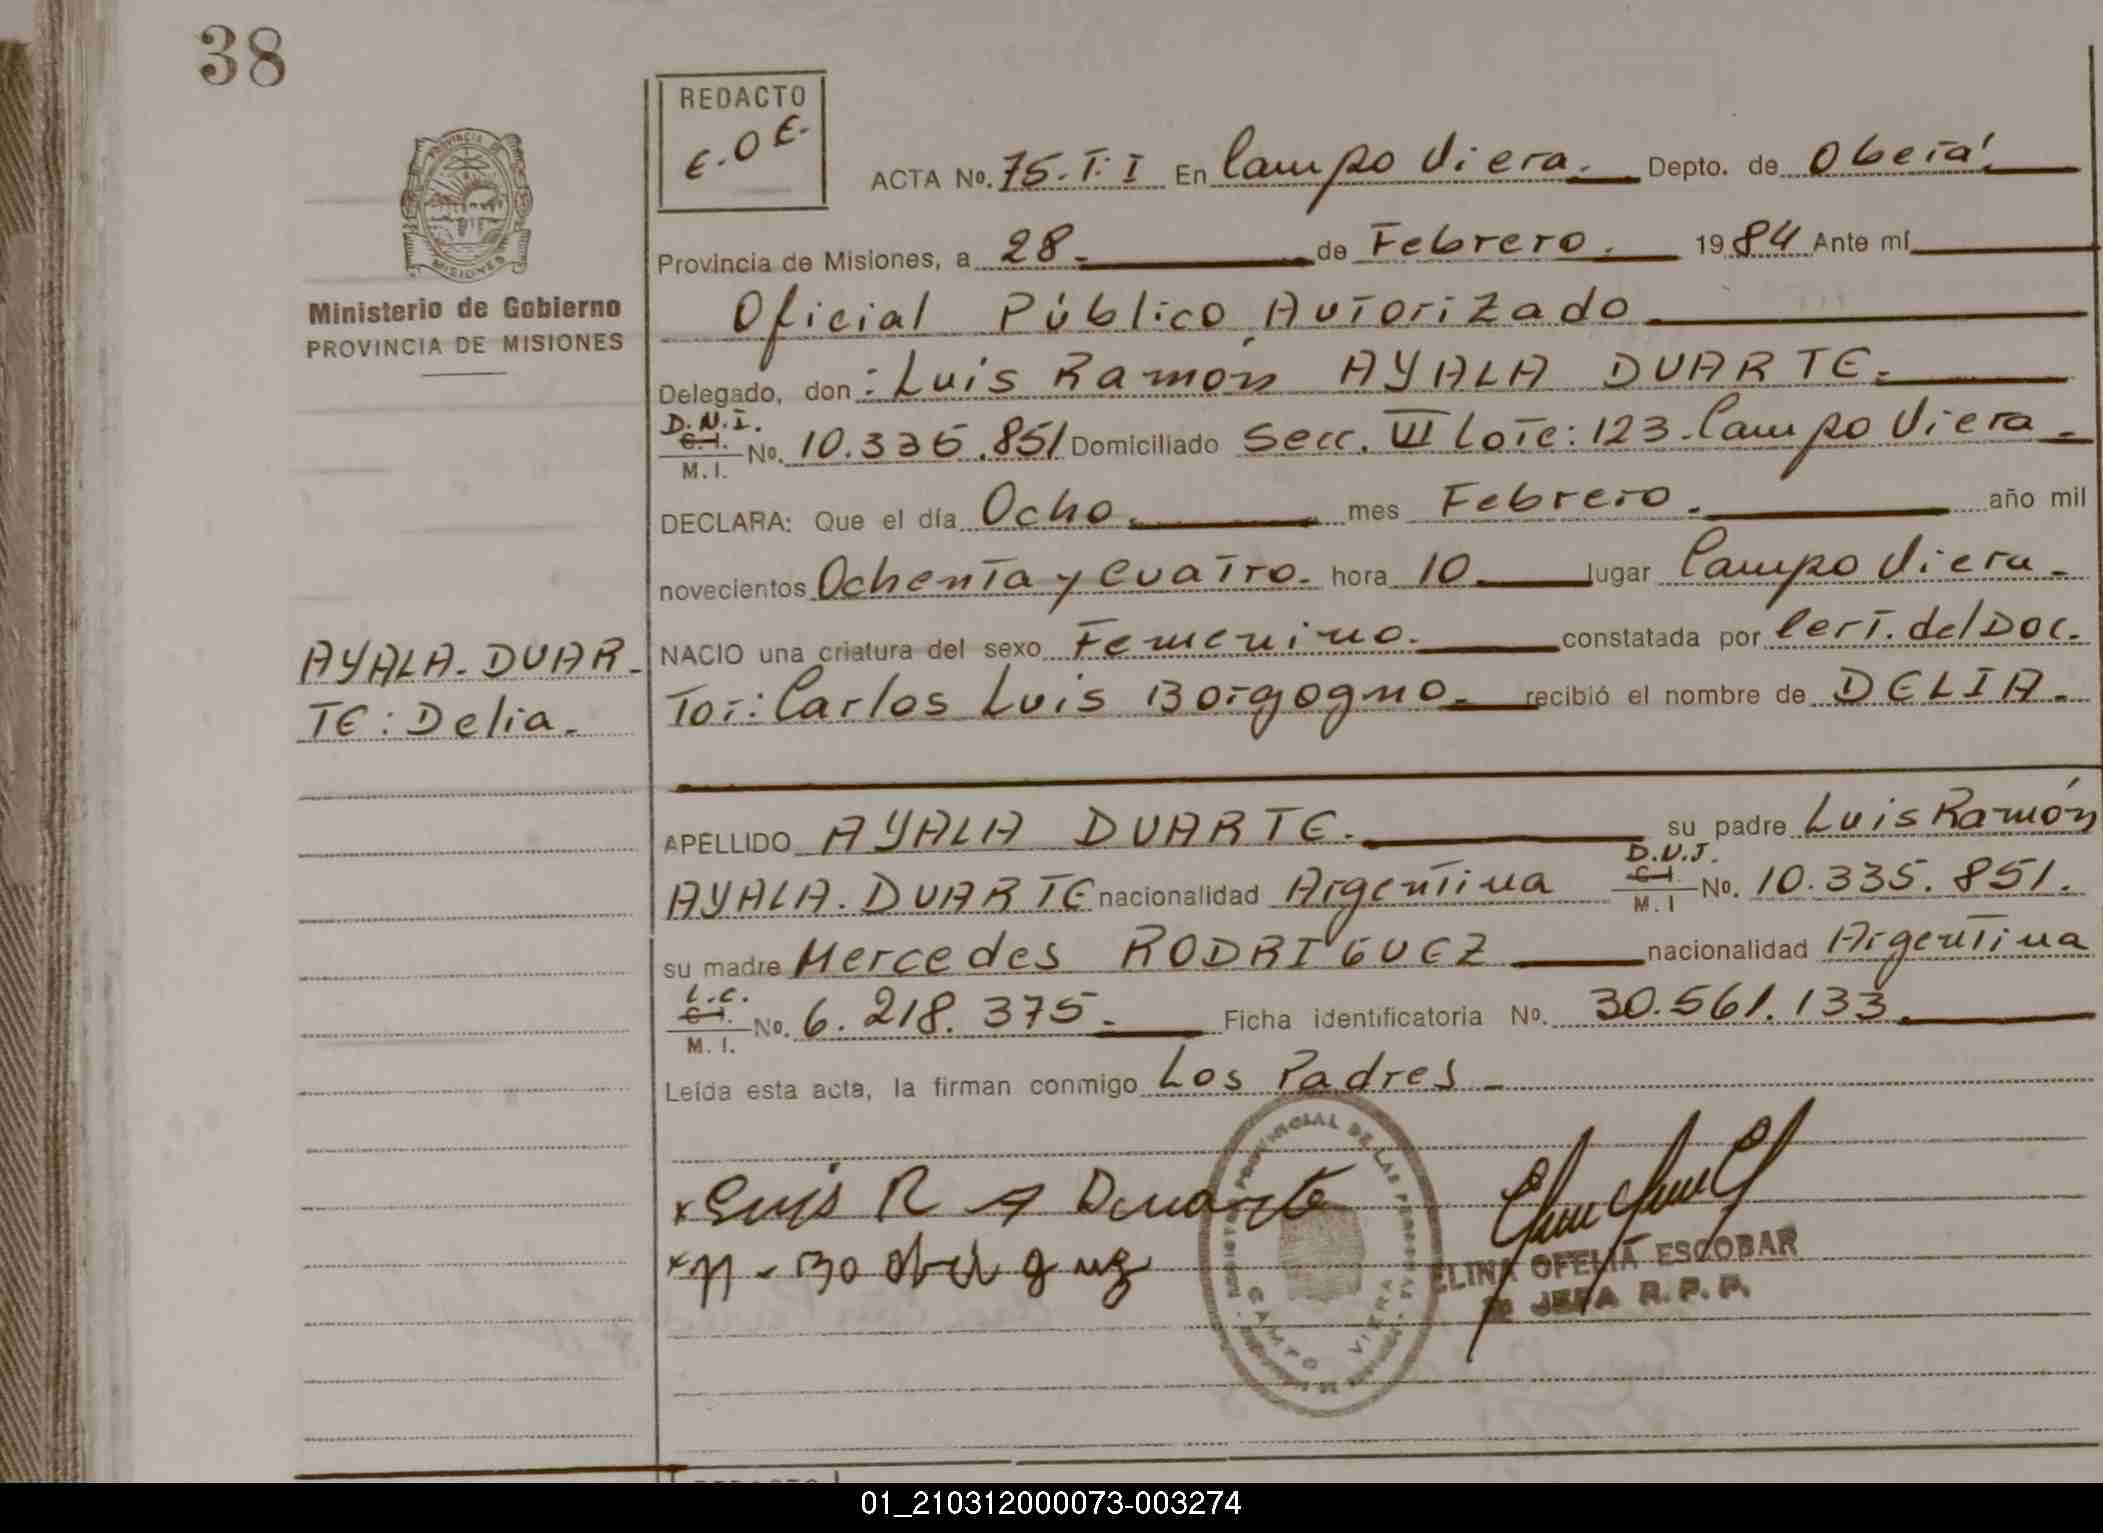 38
REDACTO
E.O E.
ACTA No. 75. T: I En Campo Viera. Depto. de Oberá.
Provincia de Misiones, a 28. de Febrero. 1984 Ante mí
Oficial Público Autorizado
Delegado, don: Luis Ramón AYALA DUARTE.
D.N.I.
C.I. No. 10.335.851 Domiciliado Secc. VII Lote: 123. Campo Viera.
M.I.
DECLARA: Que el día Ocho. mes Febrero. año mil
novecientos Ochenta y Cuatro. hora 10. lugar Campo Viera.
NACIO una criatura del sexo Femenino. constatada por Cert. del Doc.
Tor: Carlos Luis Borgogno. recibió el nombre de DELIA.
APELLIDO AYALA DUARTE. su padre Luis Ramón
D.N.I.
AYALA. DUARTE nacionalidad Argentina C.I. No. 10.335.851.
M.I
su madre Mercedes RODRIGUEZ nacionalidad Argentina
L.C.
C.I. No. 6.218.375. Ficha identificatoria No. 30.561.133.
M.I.
Leída esta acta, la firman conmigo Los Padres
x Luis R A Duarte
ELINA OFELIA ESCOBAR
JEFA R.P.P.
PROVINCIAL DE LAS PERSONAS
CAMPO VIERA
PROVINCIA DE
MISIONES
Ministerio de Gobierno
PROVINCIA DE MISIONES
AYALA. DUAR.
TE: Delia.
01_210312000073-003274